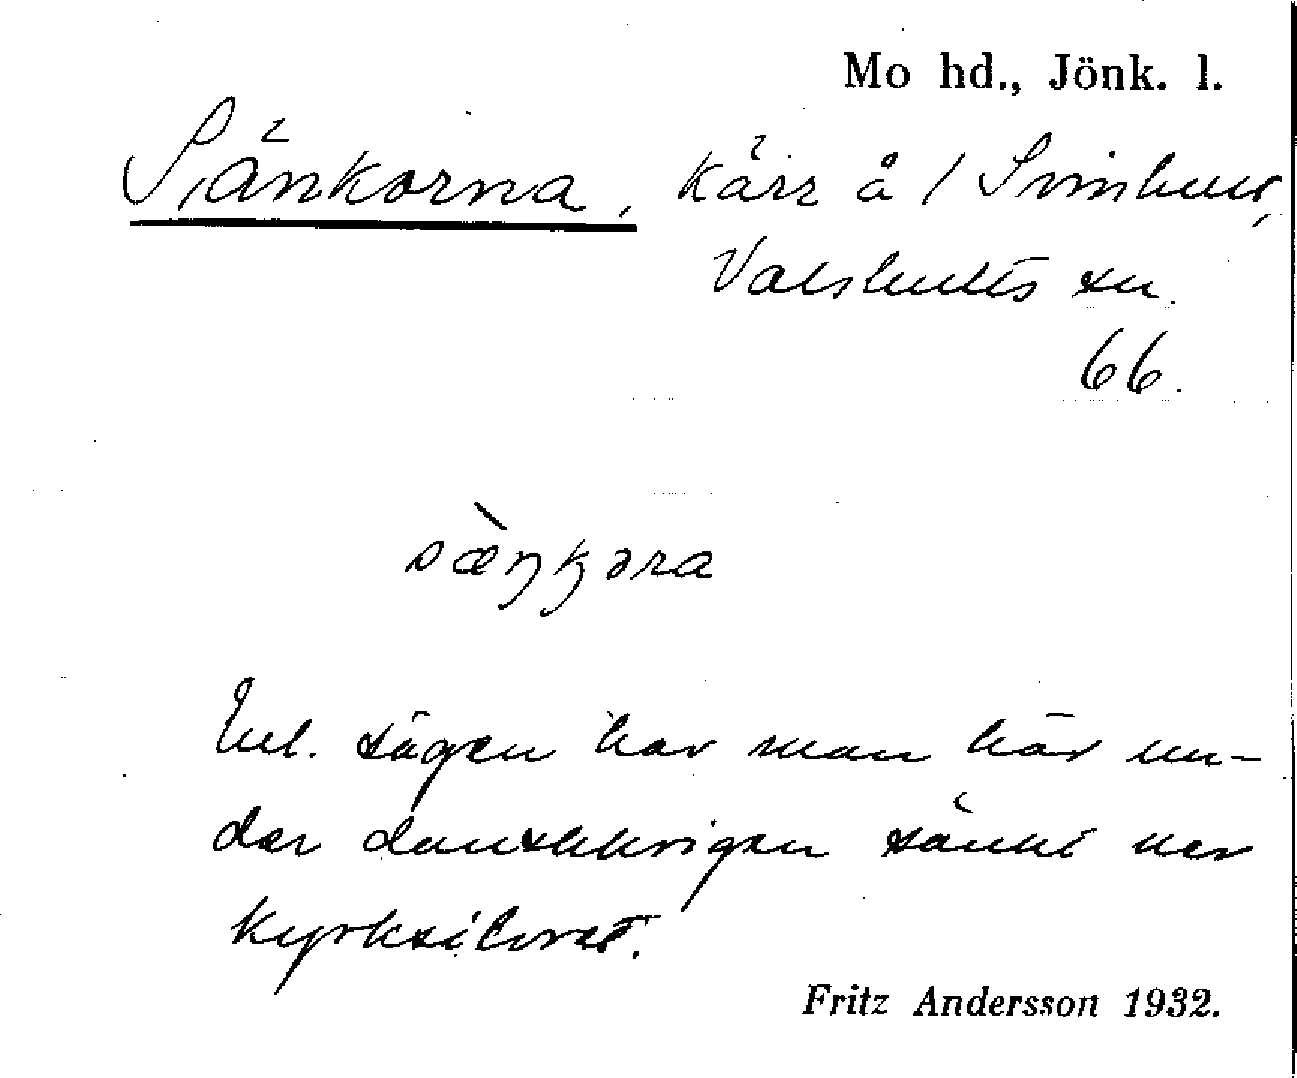 Mo hd., Jönk. l.
Sänkorna, kärr å / Svinhult,
Valshults sn.
66.
sæ̀ŋkəra
Enl. sägen har man här un-
der danskkrigen sänkt ner
kyrksilvret.
Fritz Andersson 1932.